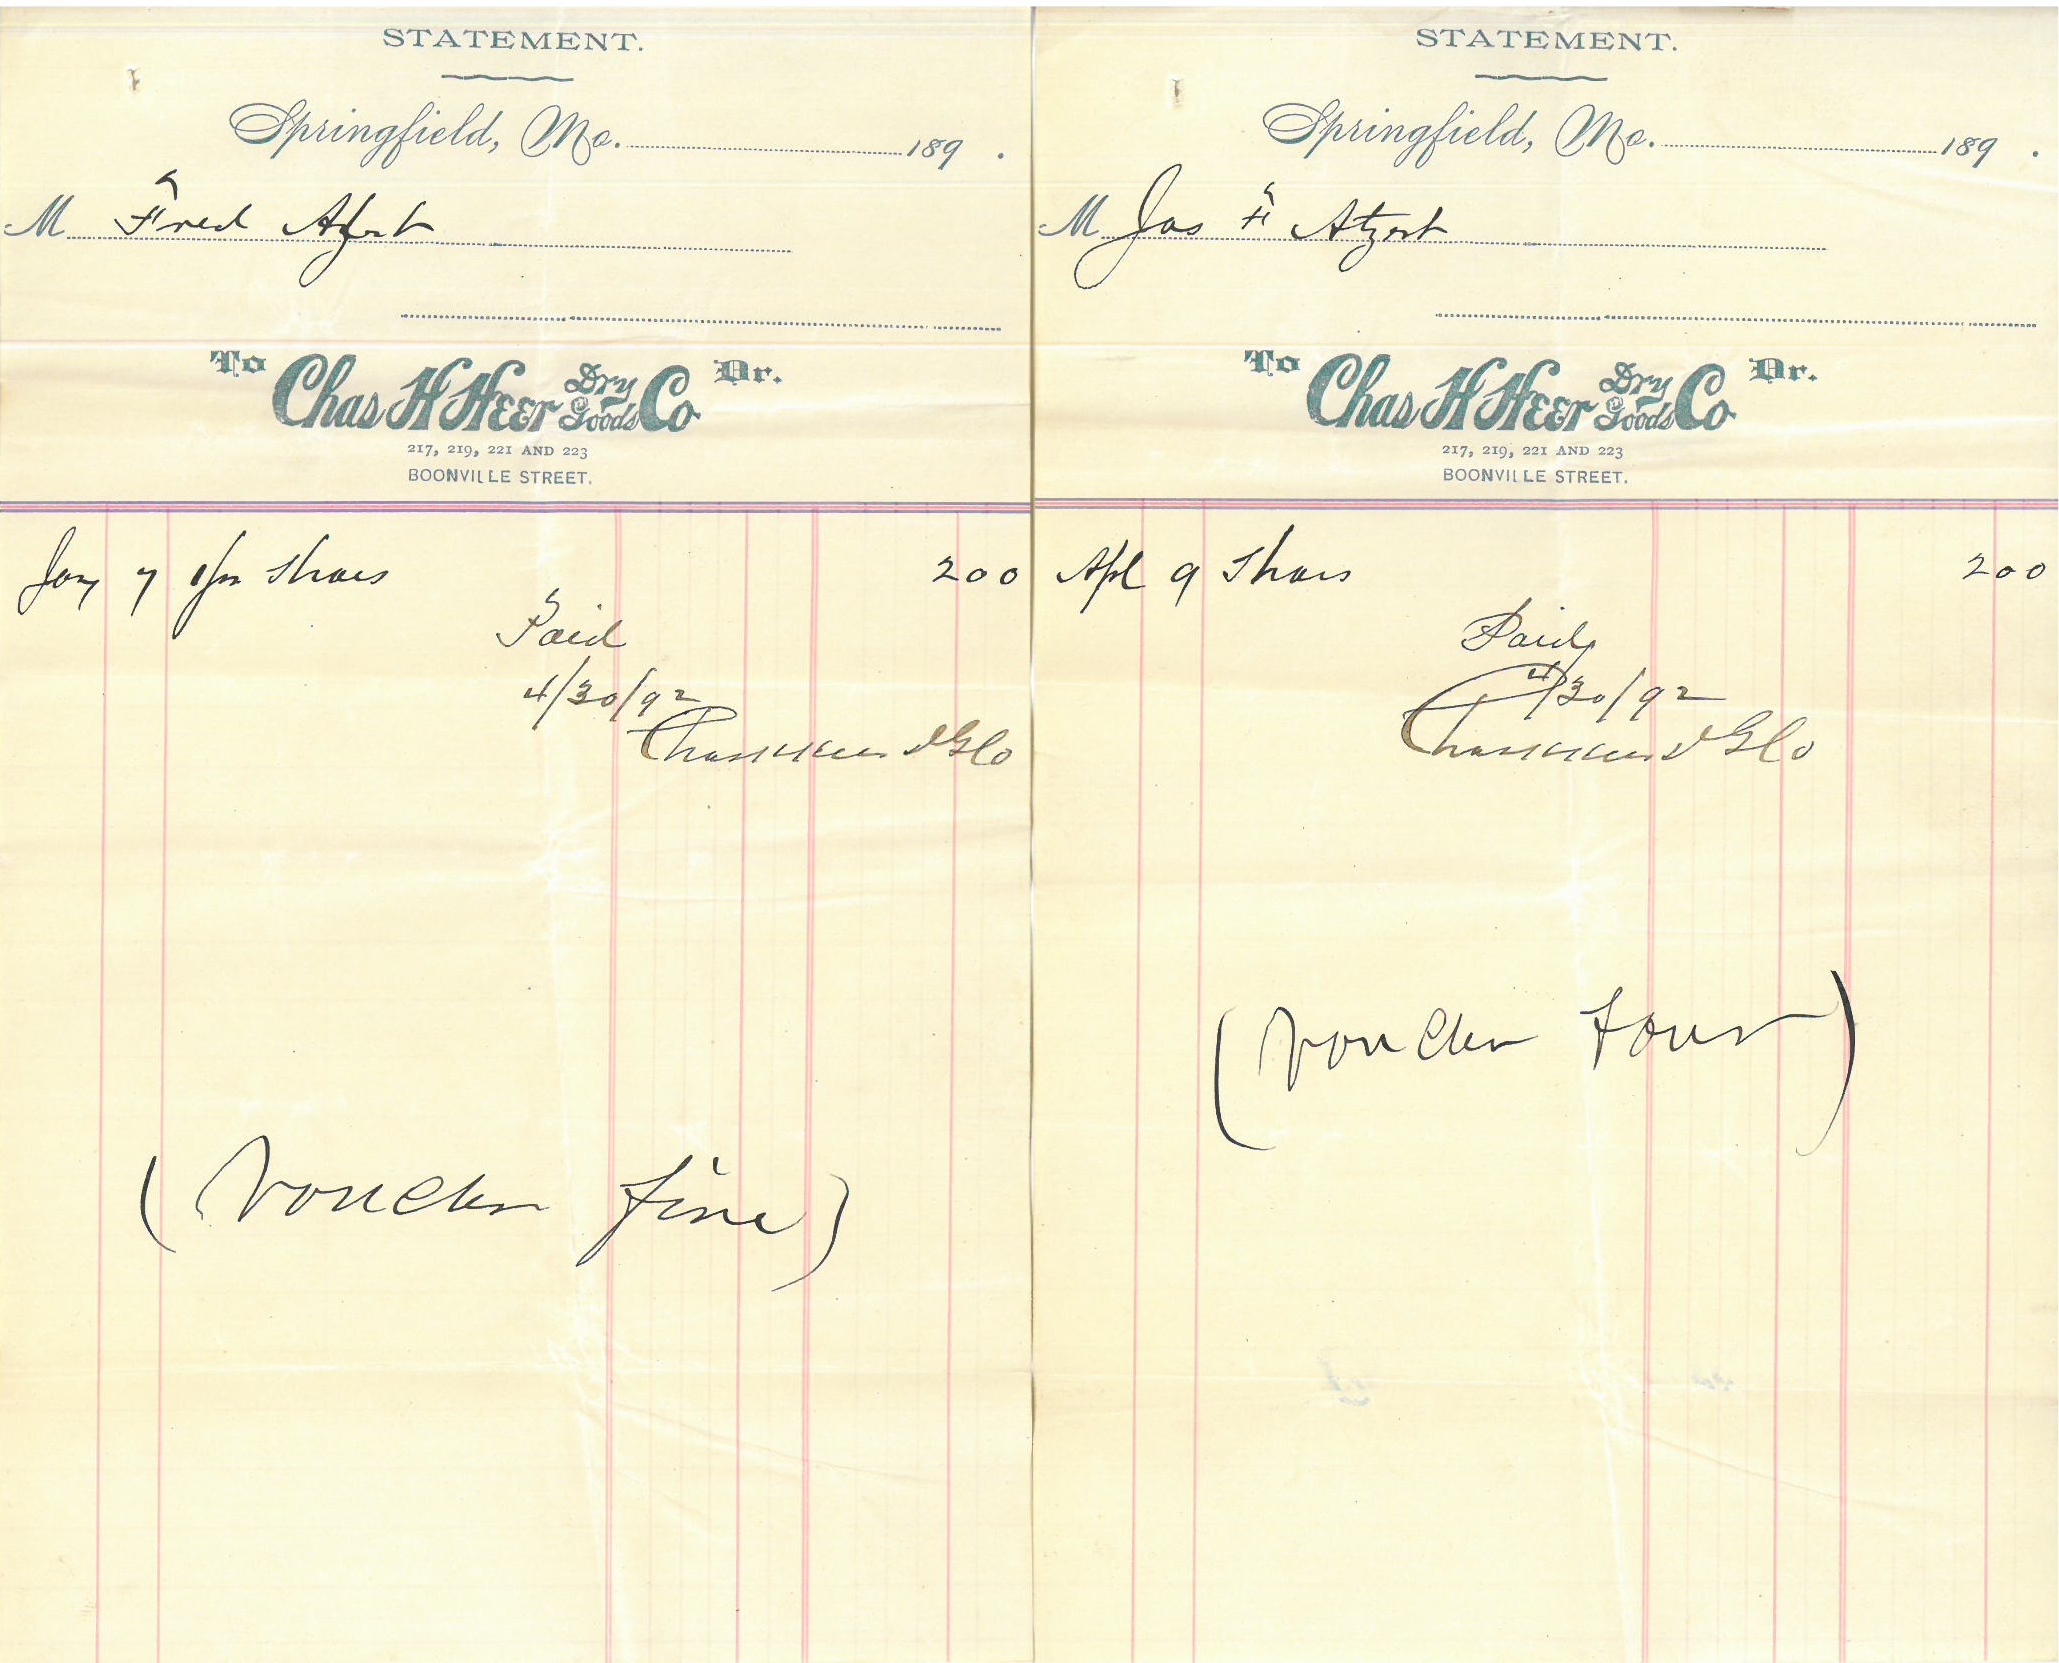 STATEMENT.
Springfield, Mo. 189 .
M Fred Atzert
To Chas H Heer Dry Goods Co Dr.
217, 219, 221 AND 223
BOONVILLE STREET.
Jany 7 1 pr Shoes 200
Paid
4/30/92
Chas H Heer D G Co
(Voucher five)
STATEMENT.
Springfield, Mo. 189 .
M Jas F Atzert
To Chas H Heer Dry Goods Co Dr.
217, 219, 221 AND 223
BOONVILLE STREET.
Apl 9 Shoes 200
Paid
4/30/92
Chas H Heer D G Co
(Voucher four)